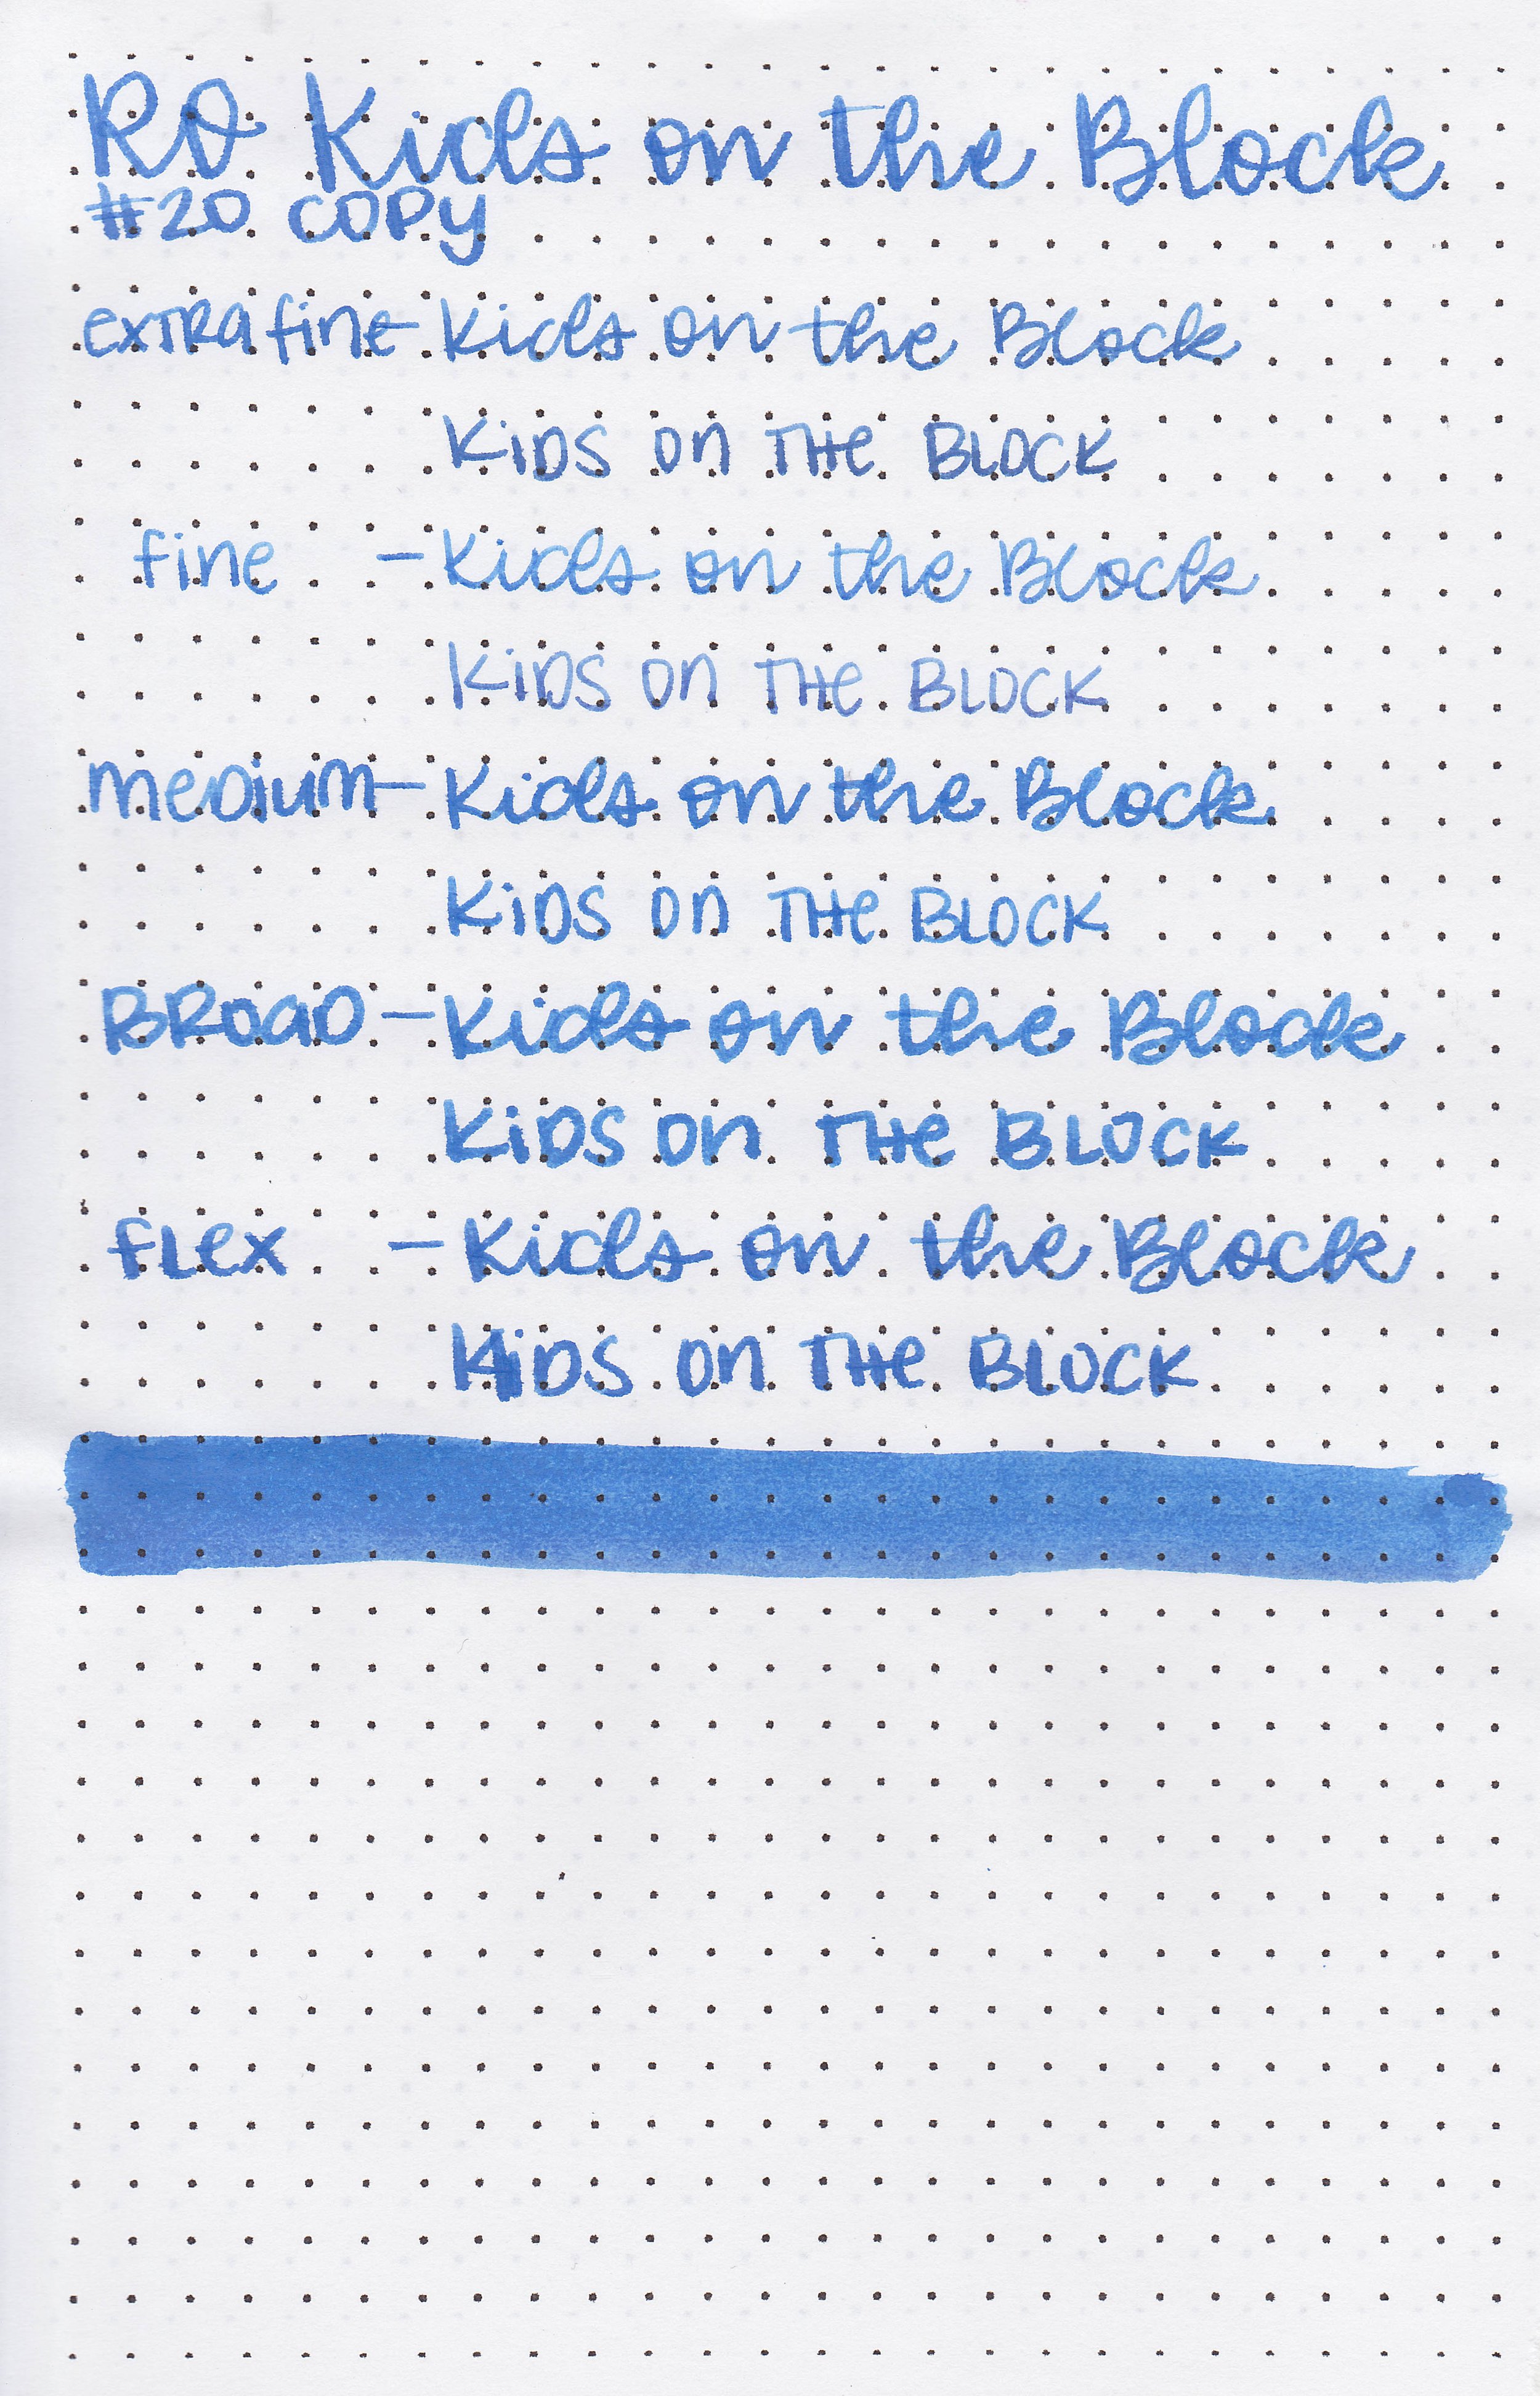 RO Kids on the Block
#20 COPY
extra fine - Kids on the Block
KiDS on THe BLOCK
fine - Kids on the Block
KiDS on THe BLOCK
meDium - Kids on the Block
KiDS on THe BLOCK
BROaD - Kids on the Block
KiDS on THe BLOCK
fLex - Kids on the Block
KiDS on THe BLOCK